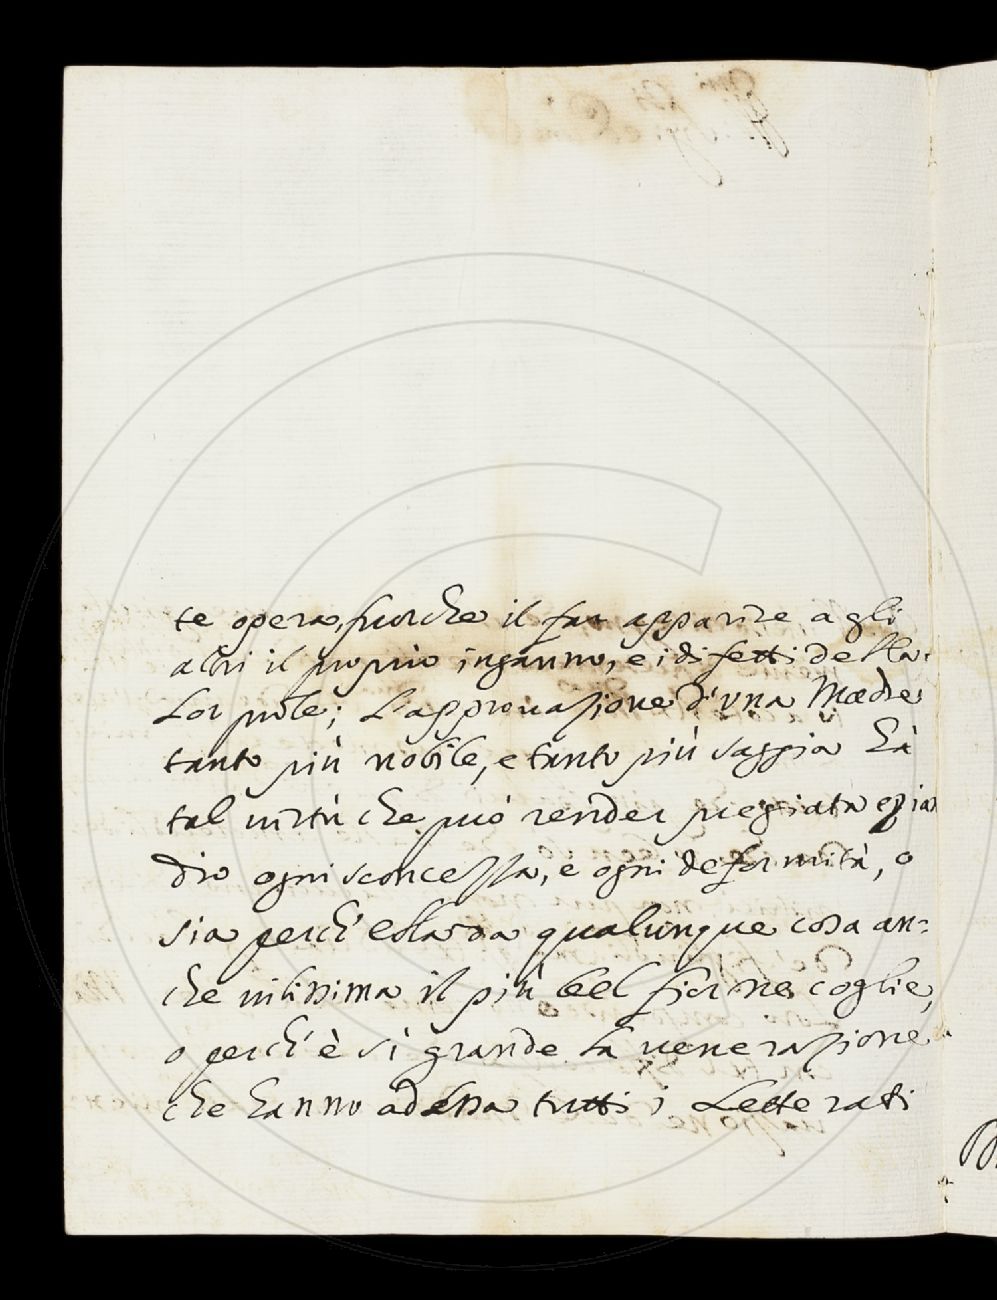 te opera, fuorche il far apparire a gli
altri il proprio inganno, e i difetti della
Lor prole; L'approuazione d'vna Madre
tanto più nobile, e tanto più saggia hà
tal uirtù che può render pregiata ezian
dio ogni sconcezza, e ogni deformità, o
sia perch' ella da qualunque cosa an=
che uilissima il più bel fiore coglie,
o perch' è sì grande la uenerazione
che hanno ad essa tutti i Letterati